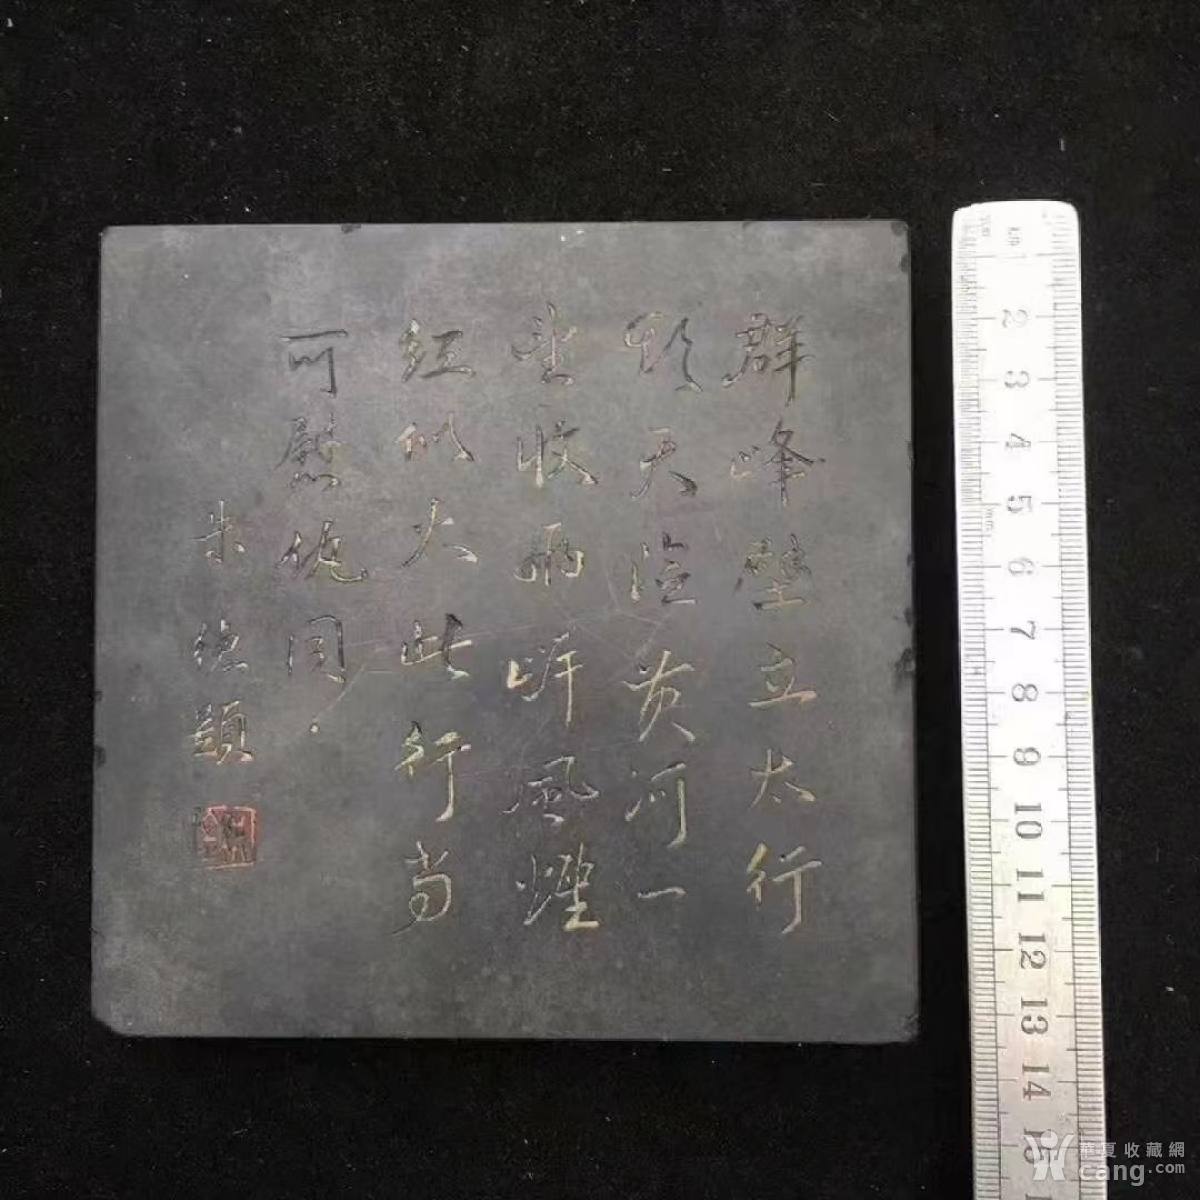 群峰壁立太行
頭天险黄河一
望收両岸風煙
红似火此行当
可慰仇同.
朱德題
2
3
4
5
mm
6
7
8
9
10
11
12
13
14
15
華夏收藏網
cang.com